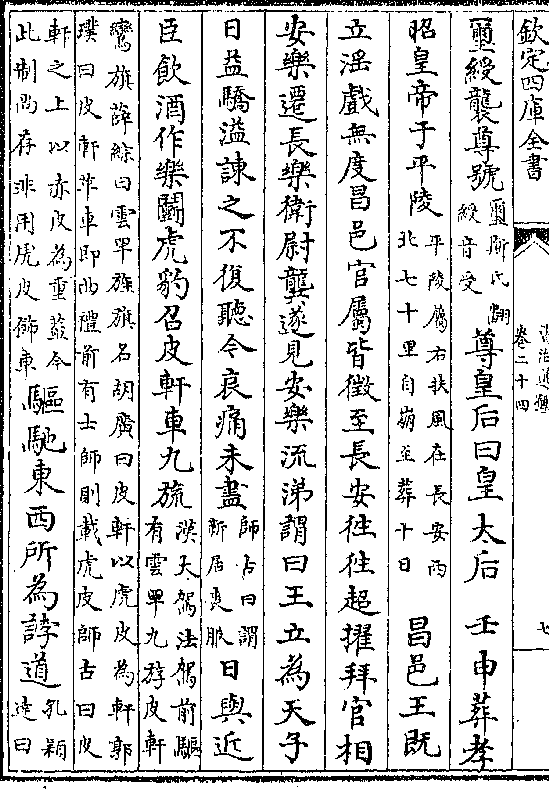 欽定四庫全書
資治通鑑
卷二十四
七
璽綬襲尊號璽斯氏翻綬音受尊皇后曰皇太后 壬申葬孝
昭皇帝于平陵平陵屬右扶風在長安西北七十里自崩至葬十日 昌邑王既
立淫戲無度昌邑官屬皆徵至長安往往超擢拜官相
安樂遷長樂衛尉龔遂見安樂流涕謂曰王立為天子
日益驕溢諫之不復聽今哀痛未盡師古曰謂新居喪服日與近
臣飲酒作樂鬬虎豹召皮軒車九旒漢大駕法駕前驅有雲䍐九斿皮軒
鸞旗薛綜曰雲䍐旌旗名胡廣曰皮軒以虎皮為軒郭
璞曰皮軒革車即曲禮前有士師則載虎皮師古曰皮
軒之上以赤皮為重葢今此制尚存非用虎皮飾車驅馳東西所為誖道孔穎達曰